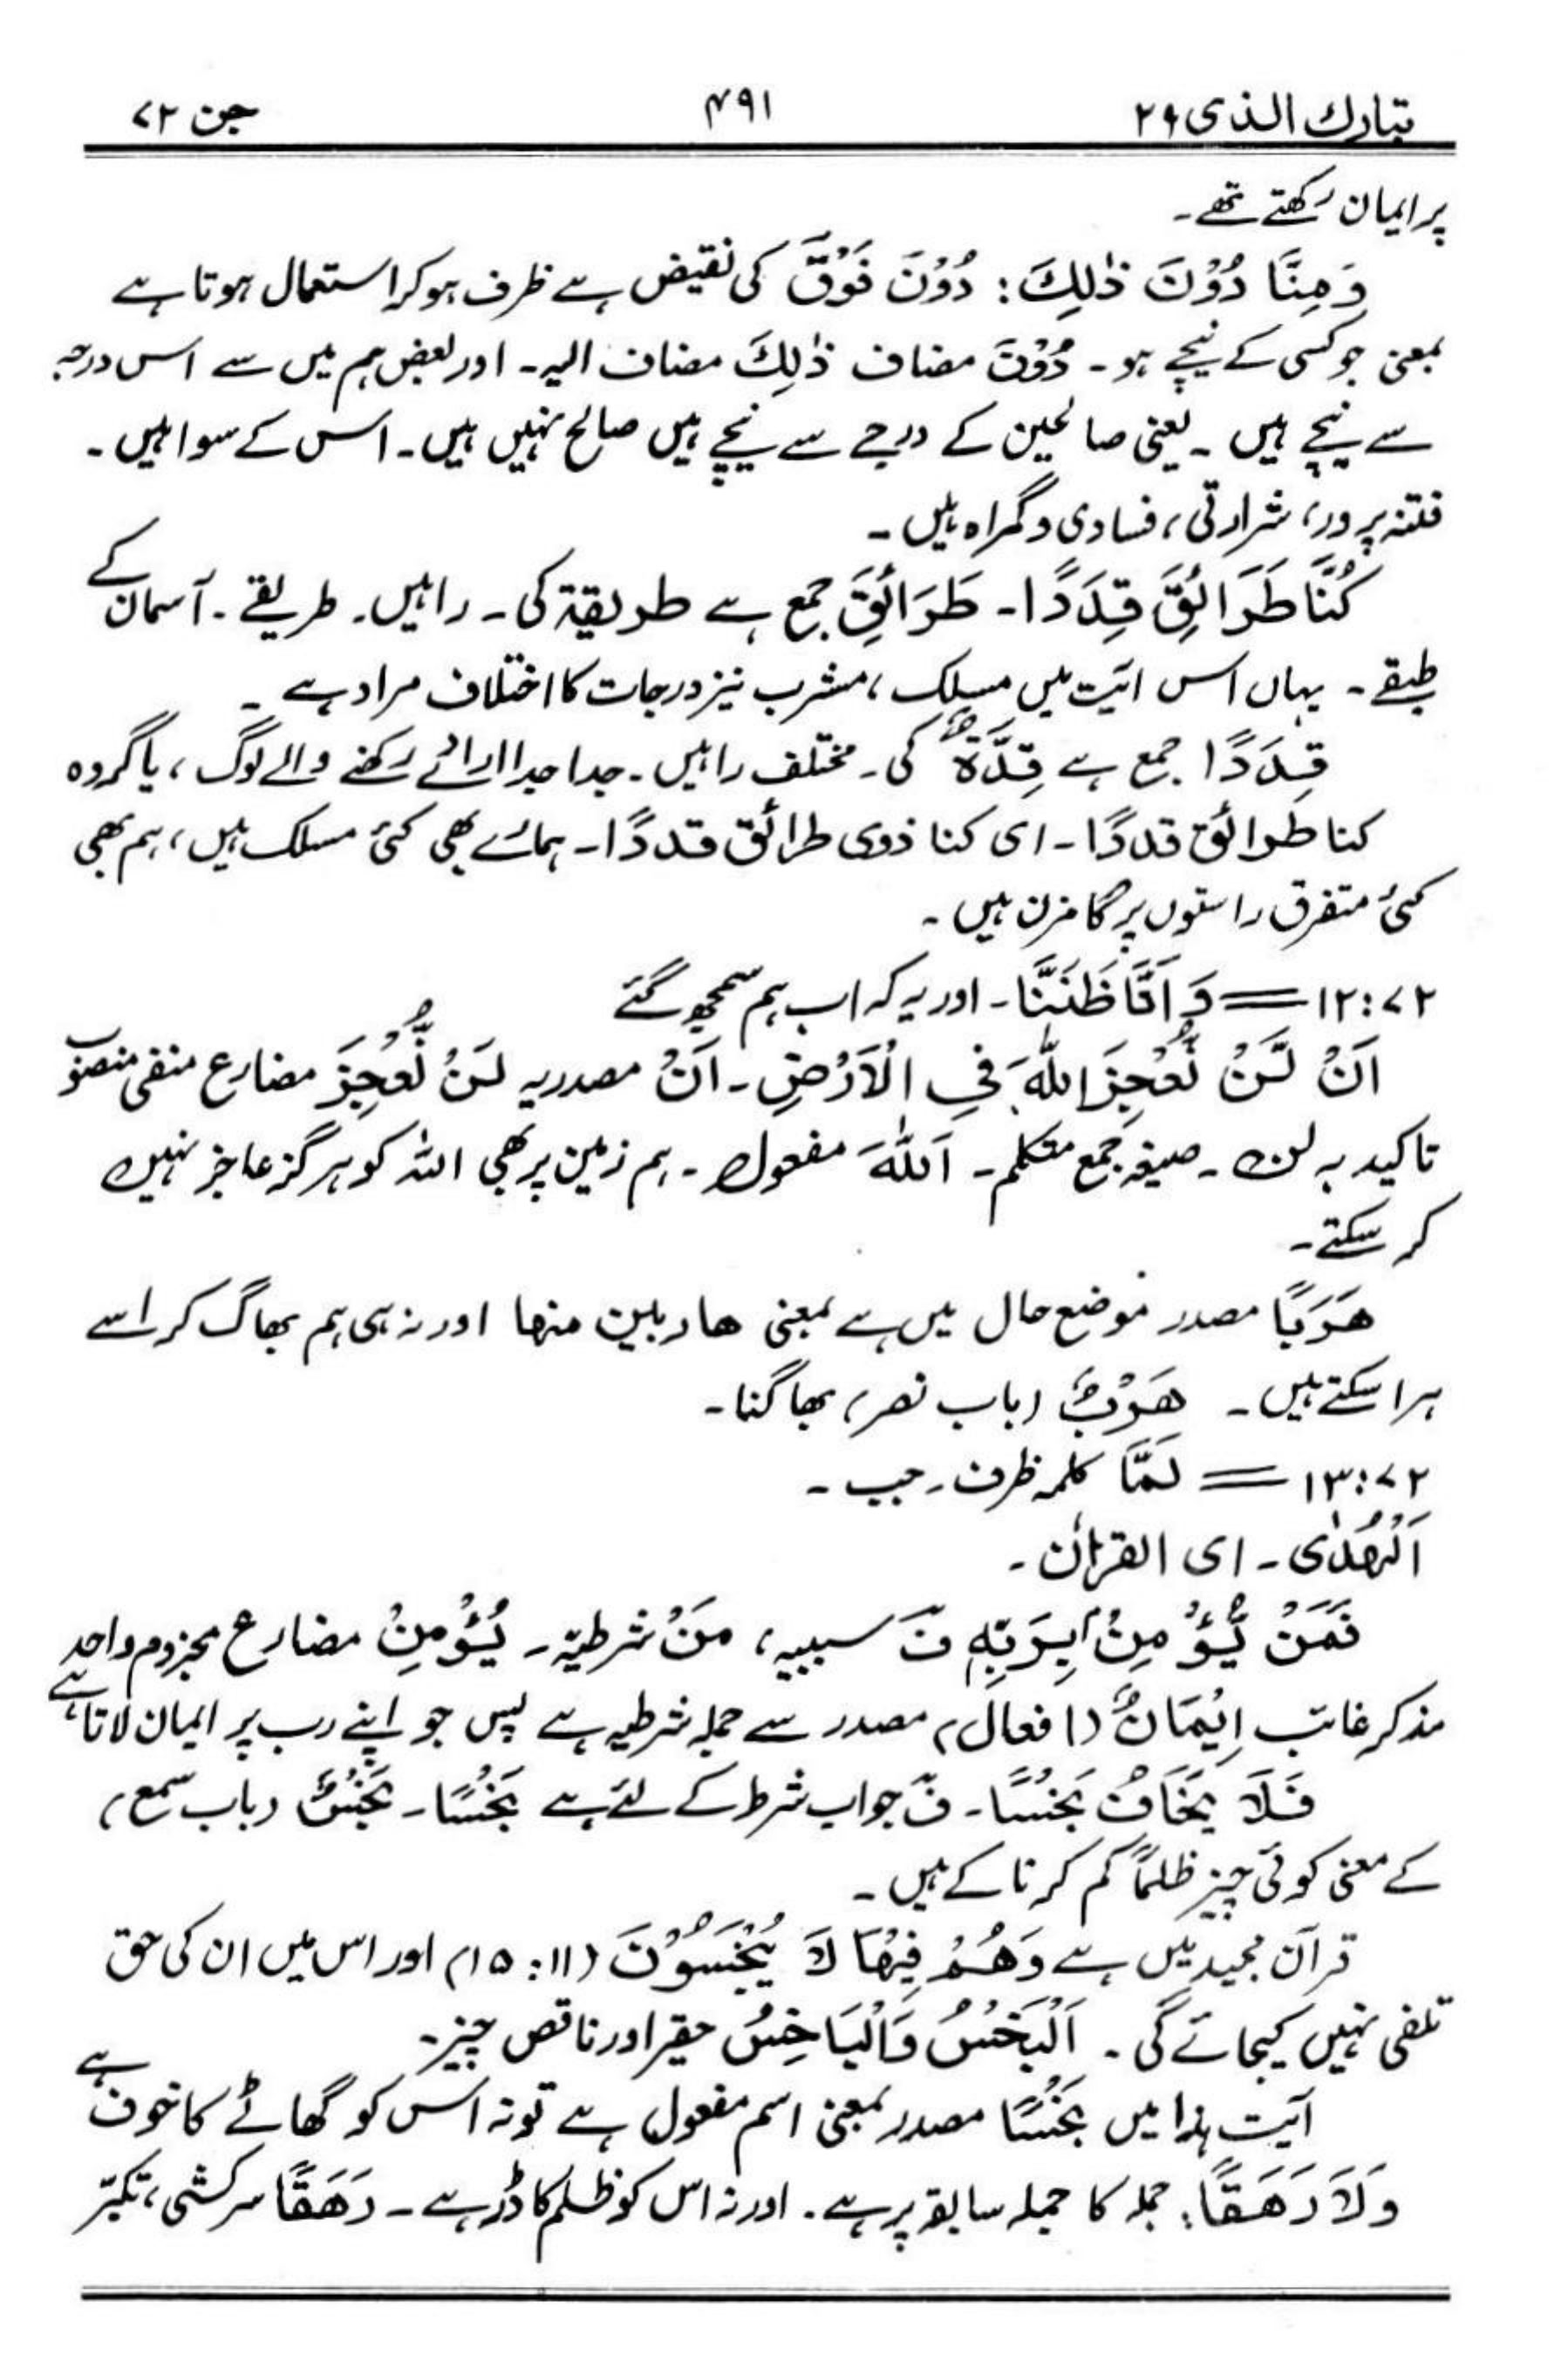 تبارك الذی ۲۹ ۴۹۱ جن ۷۲
پر ایمان رکھتے تھے۔
وَمِنَّا دُوْنَ ذٰلِكَ: دُوْنَ فَوْقَ کی نقیض ہے ظرف ہوکر استعمال ہوتا ہے
بمعنی جو کسی کے نیچے ہو۔ دُوْنَ مضاف ذٰلِكَ مضاف الیہ۔ اور بعض ہم میں سے اس درجہ
سے نیچے ہیں ۔ یعنی صالحین کے درجے سے نیچے ہیں صالح نہیں ہیں۔ اس کے سوا ہیں۔
فتنہ پرور، شرارتی، فسادی و گمراہ ہیں۔
كُنَّا طَرَآئِقَ قِدَدًا۔ طَرَآئِقَ جمع ہے طریقۃ کی۔ راہیں۔ طریقے۔ آسمان کے
طبقے۔ یہاں اس آیت میں مسلک، مشرب نیز درجات کا اختلاف مراد ہے ۔
قِدَدًا جمع ہے قِدَّةٌ کی۔ مختلف راہیں۔ جدا جدا ارائے رکھنے والے لوگ، یا گروہ
کنا طرائق قددًا۔ ای کنا ذوی طرائق قددًا۔ ہمارے بھی کئی مسلک ہیں، ہم بھی
کئی متفرق راستوں پر گامزن ہیں ۔
۷۲:۱۲ = وَاَنَّا ظَنَنَّا۔ اور یہ کہ اب ہم سمجھ گئے
اَنْ لَّنْ نُّعْجِزَ اللّٰهَ فِی الْاَرْضِ۔ اَنْ مصدریہ لَنْ نُّعْجِزَ مضارع منفی منصوب
تاکید بہ لن ۔ صیغہ جمع متکلم۔ اَللّٰهَ مفعول۔ ہم زمین پر بھی اللہ کو ہرگز عاجز نہیں
کر سکتے۔
هَرَبًا مصدر موضع حال میں ہے بمعنی ھاربین منھا اور نہ ہی ہم بھاگ کر اسے
ہرا سکتے ہیں۔ هَرْبٌ (باب نصر) بھاگنا۔
۷۲:۱۳ = لَمَّا کلمہ ظرف۔ جب ۔
اَلْهُدٰى۔ ای القراٰن ۔
فَمَنْ يُّؤْمِنْۢ بِرَبِّهٖ فَ سببیہ، مَنْ شرطیہ۔ يُؤْمِنْ مضارع مجزوم واحد
مذکر غائب اِيْمَانٌ (افعال) مصدر سے جملہ شرطیہ ہے پس جو اپنے رب پر ایمان لاتا ہے
فَلَا يَخَافُ بَخْسًا۔ فَ جواب شرط کے لئے ہے بَخْسًا۔ بَخْسٌ (باب سمع)
کے معنی کوئی چیز ظلمًا کم کرنا کے ہیں ۔
قرآن مجید میں ہے وَهُمْ فِيْهَا لَا يُبْخَسُوْنَ (۱۱:۱۵) اور اس میں ان کی حق
تلفی نہیں کیجائے گی۔ اَلْبَخْسُ وَالْبَاخِسُ حقیر اور ناقص چیز۔
آیت ہذا میں بَخْسًا مصدر بمعنی اسم مفعول ہے تو نہ اس کو گھاٹے کا خوف ہے
وَلَا رَهَقًا: جملہ کا جملہ سابقہ پر ہے۔ اور نہ اس کو ظلم کا ڈر ہے۔ رَهَقًا سرکشی، تکبّر